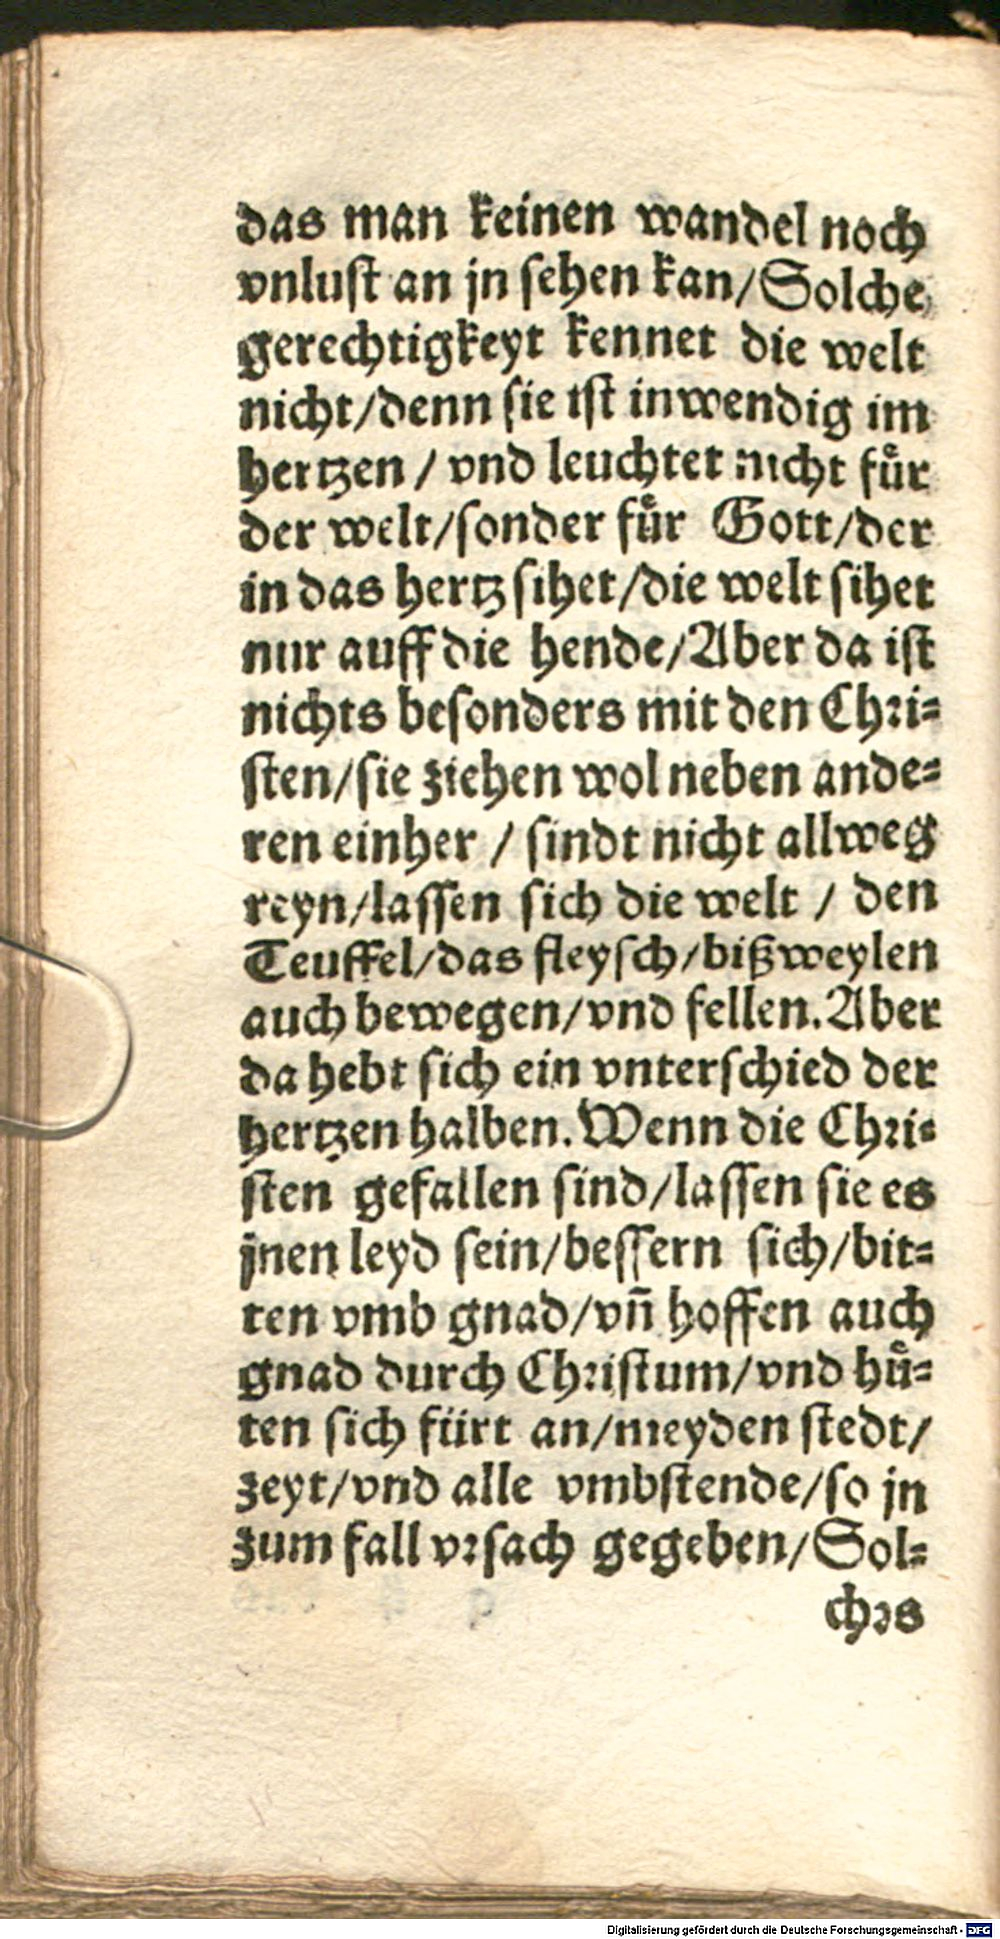 das man keinen wandel noch
vnlust an jn sehen kan/Solche
gerechtigkeyt kennet die welt
nicht/denn sie ist inwendig im
hertzen / vnd leuchtet nicht fuͤr
der welt/sonder fuͤr Gott/der
in das hertz sihet/die welt sihet
nur auff die hende/Aber da ist
nichts besonders mit den Chri-
sten/sie ziehen wol neben ande-
ren einher / sindt nicht allweg
reyn/lassen sich die welt / den
Teuffel/das fleysch/bißweylen
auch bewegen/vnd fellen.Aber
da hebt sich ein vnterschied der
hertzen halben.Wenn die Chri-
sten gefallen sind/lassen sie es
jnen leyd sein/bessern sich/bit-
ten vmb gnad/vn̄ hoffen auch
gnad durch Christum/vnd huͤ-
ten sich fürt an/meyden stedt/
zeyt/vnd alle vmbstende/so jn
zum fall vrsach gegeben/Sol-
chs
Digitalisierung gefördert durch die Deutsche Forschungsgemeinschaft - DFG